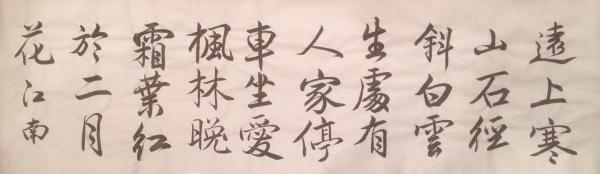 遠上寒
山石徑
斜白雲
生處有
人家停
車坐愛
楓林晚
霜葉紅
於二月
花江南